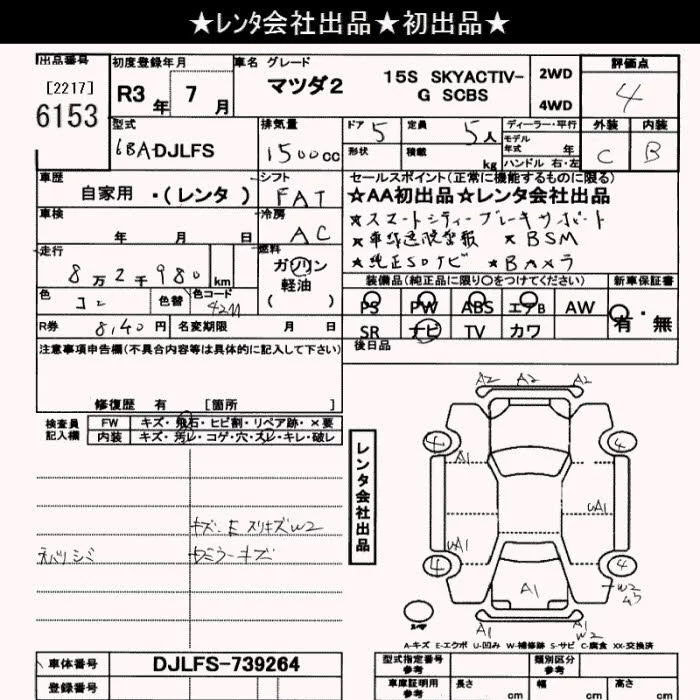 ★レンタ会社出品★初出品★
出品番号 初度登録年月 車名 グレード 評価点
[2217] 6153 R3年 7月 マツダ2 15S SKYACTIV-G SCBS 2WD 4WD 4
型式 排気量 ドア 5 定員 5人 ディーラー・平行 外装 内装
6BA-DJLFS 1500cc 形状 積載 kg モデル年式 年 C B
ハンドル 右・左
車歴 シフト セールスポイント(正常に機能するものに限る)
自家用 ・(レンタ) FAT ☆AA初出品☆レンタ会社出品
車検 冷房 ★スマートシティーブレーキサポート
年 月 日 AC ★車線逸脱警報 ★BSM
走行 燃料 ★純正SDナビ ★Bカメラ
8万2千980km ガソリン 軽油 ( ) 装備品(純正品に限り○をつけてください) 新車保証書
色 コン 色替 色コード 42M PS PW ABS エアB AW 有・無
R券 8,140円 名変期限 月 日 SR ナビ TV カワ
注意事項申告欄(不具合内容等は具体的に記入して下さい) 後日品
修復歴 有 [箇所 ]
検査員記入欄 FW キズ・飛石・ヒビ割・リペア跡・×要
内装 キズ・汚レ・コゲ・穴・スレ・キレ・破レ
レンタ会社出品
A2 A2 A2
4 4
A1
UA1
キズ・E スリキズW2
ネバリシミ サミラーキズ
UA1
4 4
A1 W2
A1 A1 W2
A-キズ E-エクボ U-凹み W-補修跡 S-サビ C-腐食 XX-交換済
車体番号 DJLFS-739264 型式指定番号 参考 類別区分 参考
登録番号 車庫証明用 参考 長さ cm 幅 cm 高さ cm